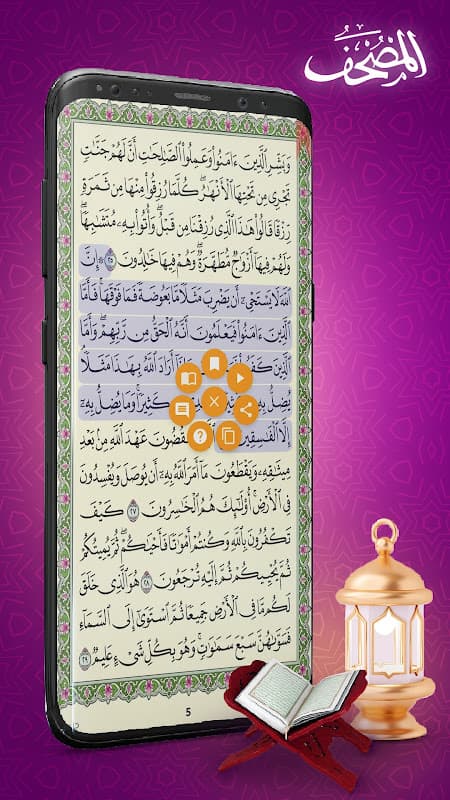 المصحف
وَبَشِّرِ ٱلَّذِينَ ءَامَنُوا۟ وَعَمِلُوا۟ ٱلصَّٰلِحَٰتِ أَنَّ لَهُمْ جَنَّٰتٍ
تَجْرِى مِن تَحْتِهَا ٱلْأَنْهَٰرُ ۖ كُلَّمَا رُزِقُوا۟ مِنْهَا مِن ثَمَرَةٍ
رِّزْقًا قَالُوا۟ هَٰذَا ٱلَّذِى رُزِقْنَا مِن قَبْلُ ۖ وَأُتُوا۟ بِهِۦ مُتَشَٰبِهًا ۖ
وَلَهُمْ فِيهَآ أَزْوَٰجٌ مُّطَهَّرَةٌ ۖ وَهُمْ فِيهَا خَٰلِدُونَ ٢٥ ۞ إِنَّ
ٱللَّهَ لَا يَسْتَحْىِۦٓ أَن يَضْرِبَ مَثَلًا مَّا بَعُوضَةً فَمَا فَوْقَهَا ۚ فَأَمَّا
ٱلَّذِينَ ءَامَنُوا۟ فَيَعْلَمُونَ أَنَّهُ ٱلْحَقُّ مِن رَّبِّهِمْ ۖ وَأَمَّا
ٱلَّذِينَ أَرَادَ ٱللَّهُ بِهَٰذَا مَثَلًا ۘ
يُضِلُّ بِهِۦ كَثِيرًا ۚ وَمَا يُضِلُّ بِهِۦٓ
إِلَّا ٱلْفَٰسِقِينَ يَنقُضُونَ عَهْدَ ٱللَّهِ مِنۢ بَعْدِ
مِيثَٰقِهِۦ وَيَقْطَعُونَ مَآ أَمَرَ ٱللَّهُ بِهِۦٓ أَن يُوصَلَ وَيُفْسِدُونَ
فِى ٱلْأَرْضِ ۚ أُو۟لَٰٓئِكَ هُمُ ٱلْخَٰسِرُونَ ٢٧ كَيْفَ
تَكْفُرُونَ بِٱللَّهِ وَكُنتُمْ أَمْوَٰتًا فَأَحْيَٰكُمْ ۖ ثُمَّ يُمِيتُكُمْ
ثُمَّ يُحْيِيكُمْ ثُمَّ إِلَيْهِ تُرْجَعُونَ ٢٨ هُوَ ٱلَّذِى خَلَقَ
لَكُم مَّا فِى ٱلْأَرْضِ جَمِيعًا ثُمَّ ٱسْتَوَىٰٓ إِلَى ٱلسَّمَآءِ
فَسَوَّىٰهُنَّ سَبْعَ سَمَٰوَٰتٍ ۚ وَهُوَ بِكُلِّ شَىْءٍ عَلِيمٌ ٢٩
5